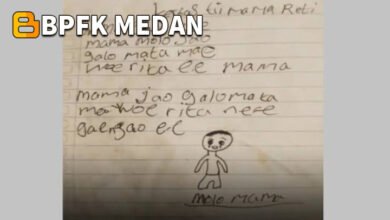 BPFK MEDAN
Kertas tii mama Reti
mama molo Jao
galo mata mae
woe rita ee mama
mama jao galo mata
mae woe rita ne'e
gaengao ee
molo mama